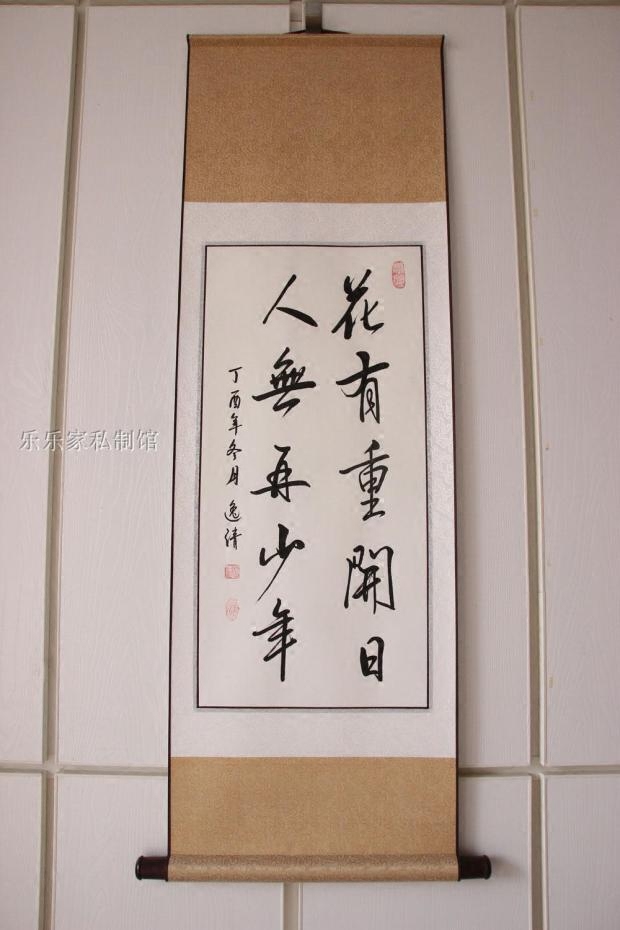 花有重開日
人無再少年
丁酉年冬月逸清
乐乐家私制馆